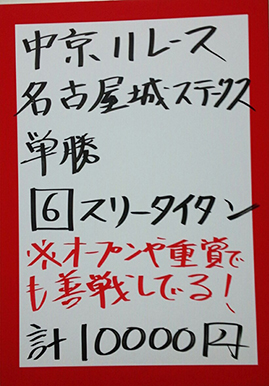 中京11レース
名古屋城ステークス
単勝
6 スリータイタン
※オープンや重賞で
も善戦してる!
計10000円